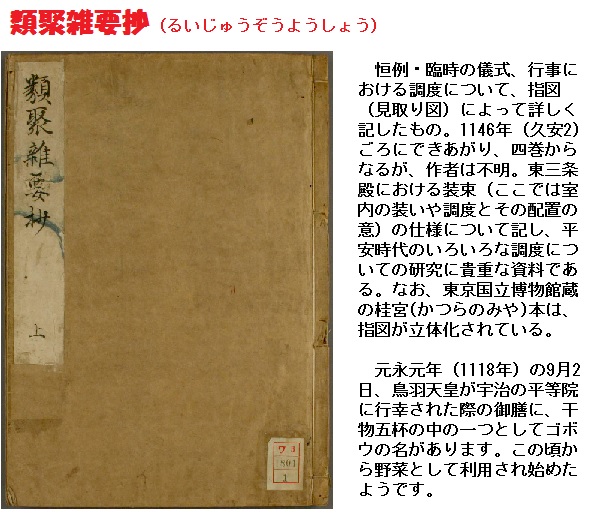 類聚雑要抄（るいじゅうぞうようしょう）
類聚雜要抄
上
ワ3
801
1
　恒例・臨時の儀式、行事に
おける調度について、指図
（見取り図）によって詳しく
記したもの。1146年（久安2）
ごろにできあがり、四巻から
なるが、作者は不明。東三条
殿における装束（ここでは室
内の装いや調度とその配置の
意）の仕様について記し、平
安時代のいろいろな調度につ
いての研究に貴重な資料であ
る。なお、東京国立博物館蔵
の桂宮(かつらのみや)本は、
指図が立体化されている。
　元永元年（1118年）の9月2
日、鳥羽天皇が宇治の平等院
に行幸された際の御膳に、干
物五杯の中の一つとしてゴボ
ウの名があります。この頃か
ら野菜として利用され始めた
ようです。